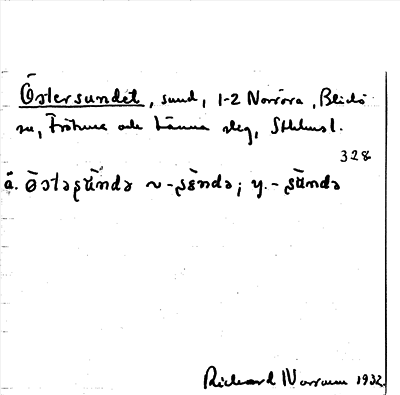 Östersundet, sund, 1-2 Norröra, Blidö
sn, Frötuna och Länna slg, Sthlms l.
328
ä. ȫstəsùndə ~ -sèndə; y. - sùndə
Richard Norrman 1932.